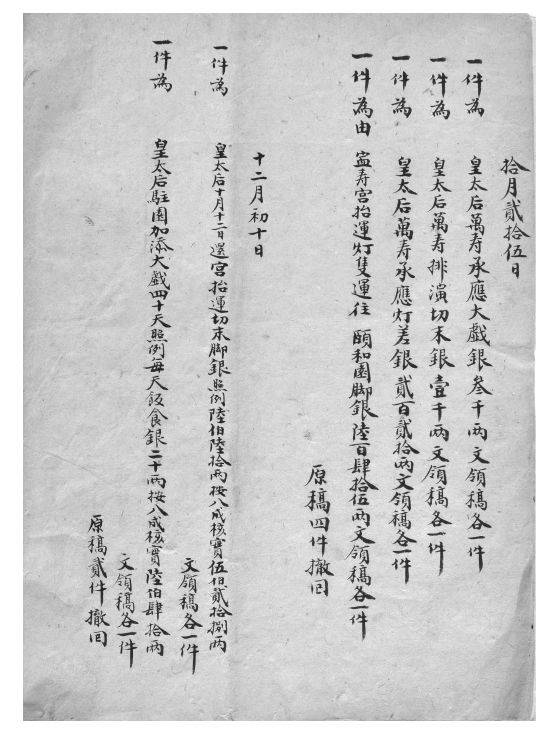 拾月貳拾伍日
一件為 皇太后萬寿承應大戲銀叁千兩文領稿各一件
一件為 皇太后萬寿排演切末銀壹千兩文領稿各一件
一件為 皇太后萬寿承應灯差銀貳百貳拾兩文領稿各一件
一件為由 寍寿宮抬運灯隻運往 頤和園脚銀陸百肆拾伍兩文領稿各一件
原稿四件撤回
十二月初十日
一件為 皇太后十月十二日還宮抬運切末脚銀照例陸伯陸拾兩按八成核實伍伯貳拾捌兩
文領稿各一件
一件為 皇太后駐園加添大戲四十天照例每天飯食銀二十兩按八成核實陸伯肆拾兩
文領稿各一件
原稿貳件撤回